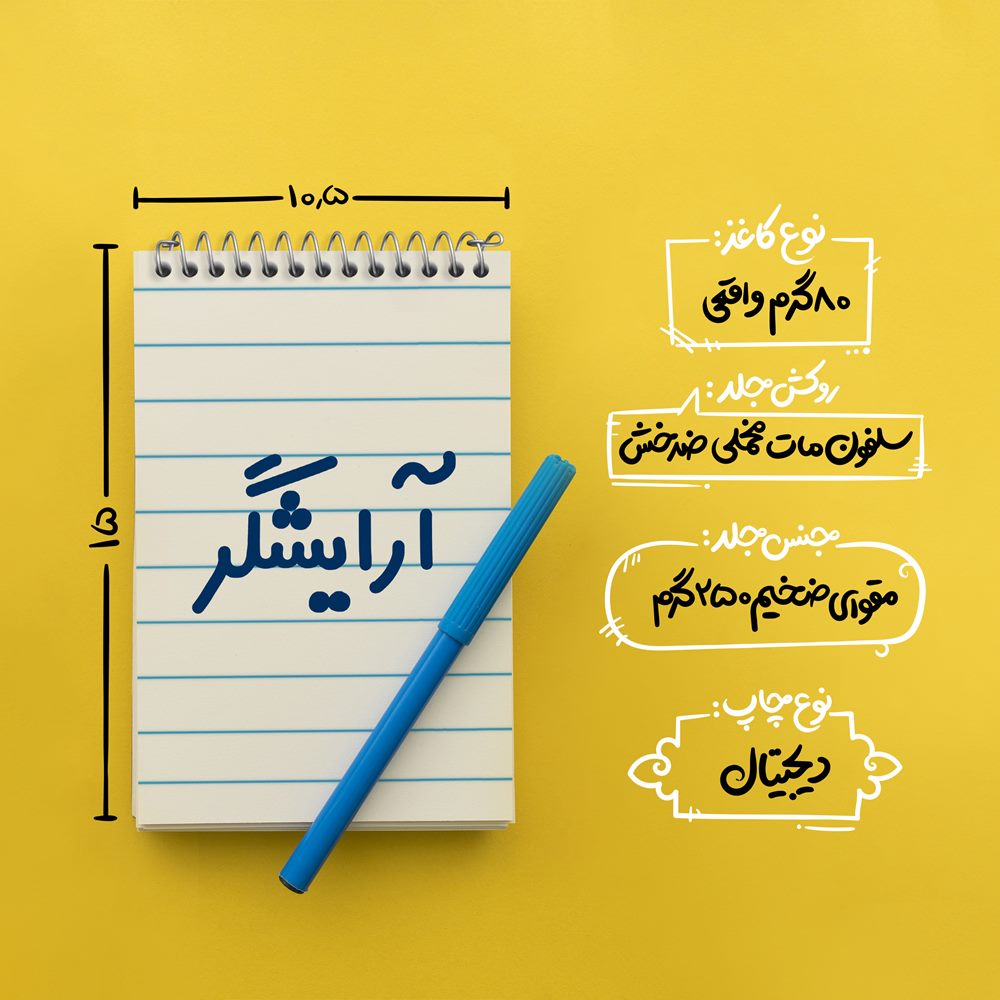 ۱۰,۵
۱۵
آرایشگر
نوع کاغذ:
۸۰گرم واقعی
روکش جلد:
سلفون مات مخملی ضدخش
جنس جلد:
مقوای ضخیم ۲۵۰گرم
نوع چاپ:
دیجیتال